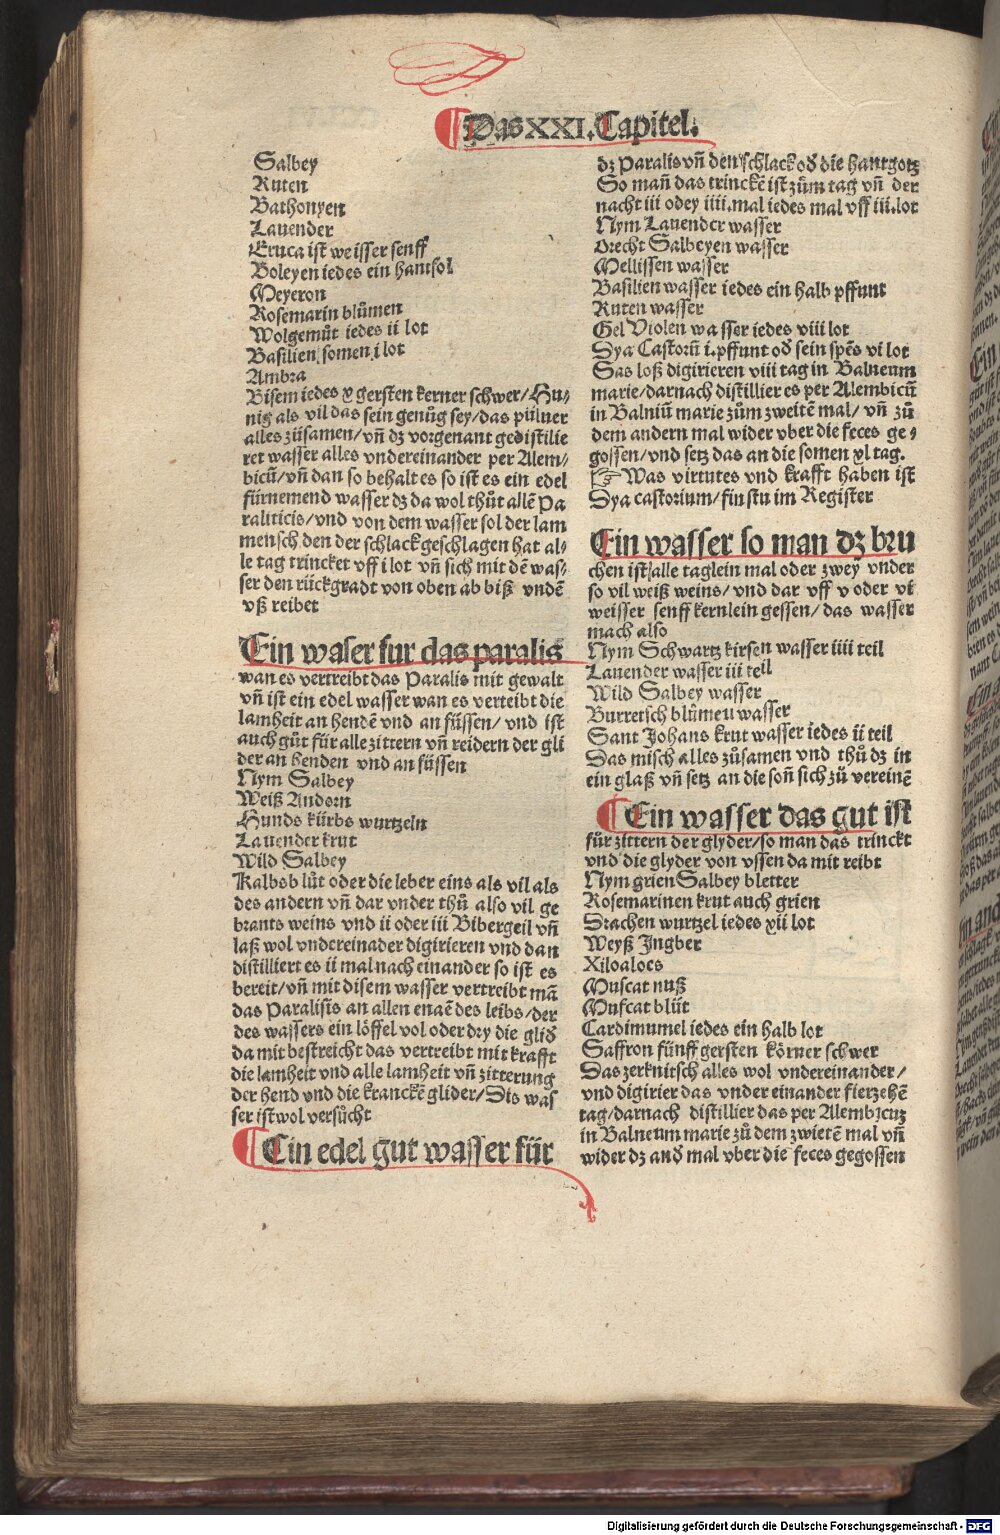 Das XXI. Capitel.
Salbey
Ruten
Bathonyen
Lauender
Eruca ist weisser senff
Boleyen iedes ein hantfol
Meyeron
Rosemarin blůmen
Wolgemůt iedes ii lot
Basilien somen i lot
Ambra
Bisem iedes x gersten kerner schwer/Hu-
nig als vil das sein genůg sey/das puluer
alles zůsamen/vñ dz vorgenant gedistilie
ret wasser alles vndereinander per Alem-
bicū/vñ dan so behalt es so ist es ein edel
fürnemend wasser dz da wol thůt allē Pa
raliticis/vnd von dem wasser sol der lam
mensch den der schlack geschlagen hat al-
le tag trincket vff i lot vñ sich mit dē was-
ser den rückgradt von oben ab biß vndē
vß reibet
Ein waser fur das paralis
wan es vertreibt das Paralis mit gewalt
vñ ist ein edel wasser wan es verteibt die
lamheit an hendē vnd an füssen/vnd ist
auch gůt für alle zittern vñ reidern der gli
der an henden vnd an füssen
Nym Salbey
Weiß Andorn
Hunds kürbs wurtzeln
Lauender krut
Wild Salbey
Kalbsblůt oder die leber eins als vil als
des andern vñ dar vnder thů also vil ge
brants weins vnd ii oder iii Bibergeil vñ
laß wol vndereinader digirieren vnd dan
distilliert es ii mal nach einander so ist es
bereit/vñ mit disem wasser vertreibt mā
das Paralisis an allen enaē des leibs/der
des wassers ein löffel vol oder dry die glid
da mit bestreicht das vertreibt mit krafft
die lamheit vnd alle lamheit vñ zitterung
der hend vnd die kranckē glider/Dis was
ser ist wol versůcht
Ein edel gut wasser für
dz Paralis vñ den schlack od die hantgotz
So mañ das trinckē ist zům tag vñ der
nacht iii odey iiii.mal iedes mal vff iii.lot
Nym Lauender wasser
Drecht Salbeyen wasser
Mellissen wasser
Basilien wasser iedes ein halb pffunt
Ruten wasser
Gel Violen wasser iedes viii lot
Dya Castorū i.pffunt od sein spēs vi lot
Das loß digirieren viii tag in Balneum
marie/darnach distillier es per Alembicū
in Balniū marie zům zweitē mal/vñ zů
dem andern mal wider vber die feces ge-
gossen/vnd setz das an die somen xl tag.
Was virtutes vnd krafft haben ist
Dya castorium/finstu im Register
Ein wasser so man dz bru
chen ist/alle tag lein mal oder zwey vnder
so vil weiß weins/vnd dar vff v oder vi
weisser senff kernlein gessen/das wasser
mach also
Nym Schwartz kirsen wasser iiii teil
Lauender wasser iii teil
Wild Salbey wasser
Burretsch blůmeu wasser
Sant Johans krut wasser iedes ii teil
Das misch alles zůsamen vnd thů dz in
ein glaß vñ setz an die soñ sich zů vereinē
Ein wasser das gut ist
für zittern der glyder/so man das trinckt
vnd die glyder von vssen da mit reibt
Nym grien Salbey bletter
Rosemarinen krut auch grien
Drachen wurtzel iedes xii lot
Weyß Jngber
Xiloaloes
Muscat nuß
Mufcat blüt
Cardimumel iedes ein halb lot
Saffron fünff gersten körner schwer
Das zerknitsch alles wol vndereinander/
vnd digirier das vnder einander fierzehē
tag/darnach distillier das per Alembicuz
in Balneum marie zů dem zwietē mal vñ
wider dz and mal vber die feces gegossen
Digitalisierung gefördert durch die Deutsche Forschungsgemeinschaft - DFG